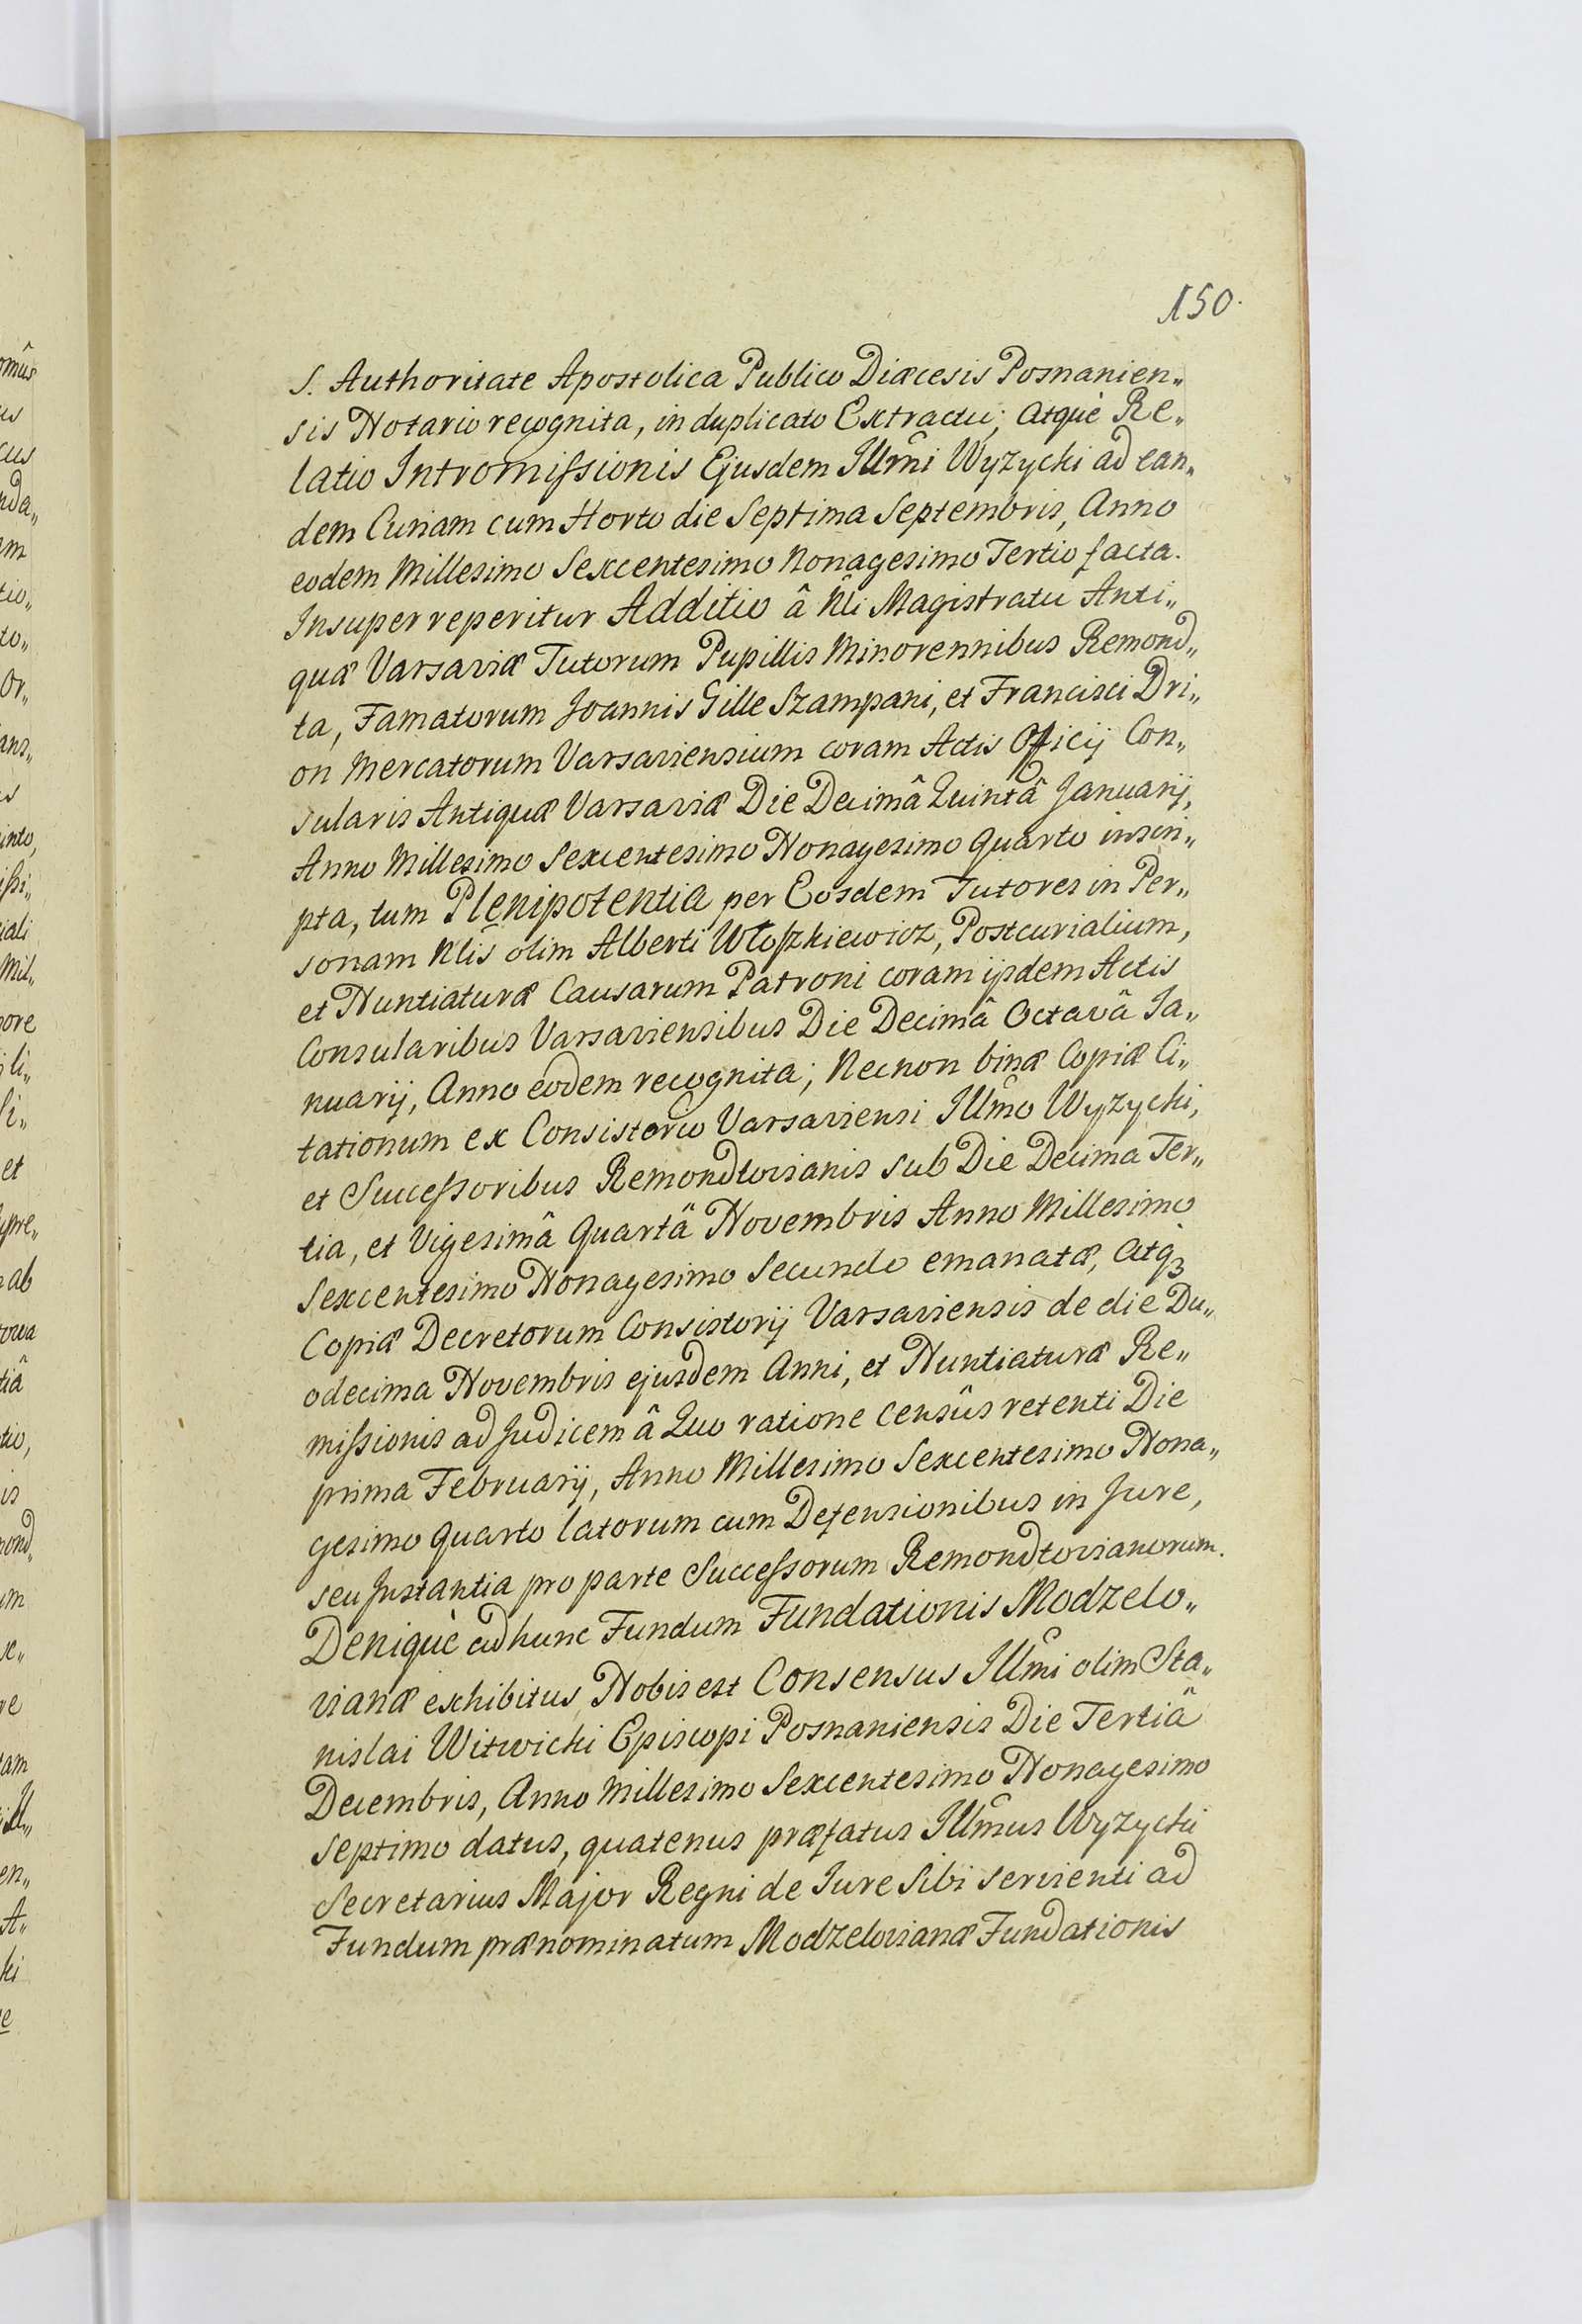 150.
S. Authoritate Apostolica Publico Diæcesis Posnanien„
sis Notario recognita, in duplicato Extractu; Atquè Re„
latio Intromiſsionis Ejusdem Illmi Wyzycki ad ean„
dem Curiam cum Horto die Septima Septembris, Anno
eodem Millesimo Sexcentesimo Nonagesimo Tertio facta.
Insuper reperitur Additio â Nli Magistratu Anti„
quæ Varsaviæ Tutorum Pupillis Minorennibus Remond„
ta, Famatorum Joannis Gille Szampani, et Francisci Dri„
on Mercatorum Varsaviensium coram Actis Officij Con„
sularis Antiquæ Varsaviæ Die Decimâ Quintâ Januarij,
Anno Millesimo Sexcentesimo Nonagesimo Quarto inscri„
pta, tum Plenipotentia per Eosdem Tutores in Per„
sonam Nlis olim Alberti Wloſzkiewicz, Postcurialium,
et Nuntiaturæ Causarum Patroni coram ijsdem Actis
Consularibus Varsaviensibus Die Decimâ Octavâ Ja„
nuarij, Anno eodem recognita; Necnon binæ Copiæ Ci„
tationum ex Consistorio Varsaviensi Illmo Wyzycki,
et Succeſsoribus Remondtovianis sub Die Decima Ter„
tia, et Vigesimâ Quartâ Novembris Anno Millesimo
Sexcentesimo Nonagesimo Secundo emanatæ, Atqꝫ
Copiæ Decretorum Consistorij Varsaviensis de die Du„
odecima Novembris ejusdem Anni, et Nuntiaturæ Re„
miſsionis ad Judicem â Quo ratione Censûs retenti Die
prima Februarij, Anno Millesimo Sexcentesimo Nona„
gesimo Quarto latorum cum Defensionibus in Jure,
seu Instantia pro parte Succeſsorum Remondtovianorum.
Deniquè ad hunc Fundum Fundationis Modzelo„
vianæ exhibitus Nobis est Consensus Illmi olim Sta„
nislai Witwicki Episcopi Posnaniensis Die Tertiâ
Decembris, Anno Millesimo Sexcentesimo Nonagesimo
Septimo datus, quatenus præfatus Illmus Wyzycki
Secretarius Major Regni de Jure Sibi servienti ad
Fundum prænominatum Modzelovianæ Fundationis